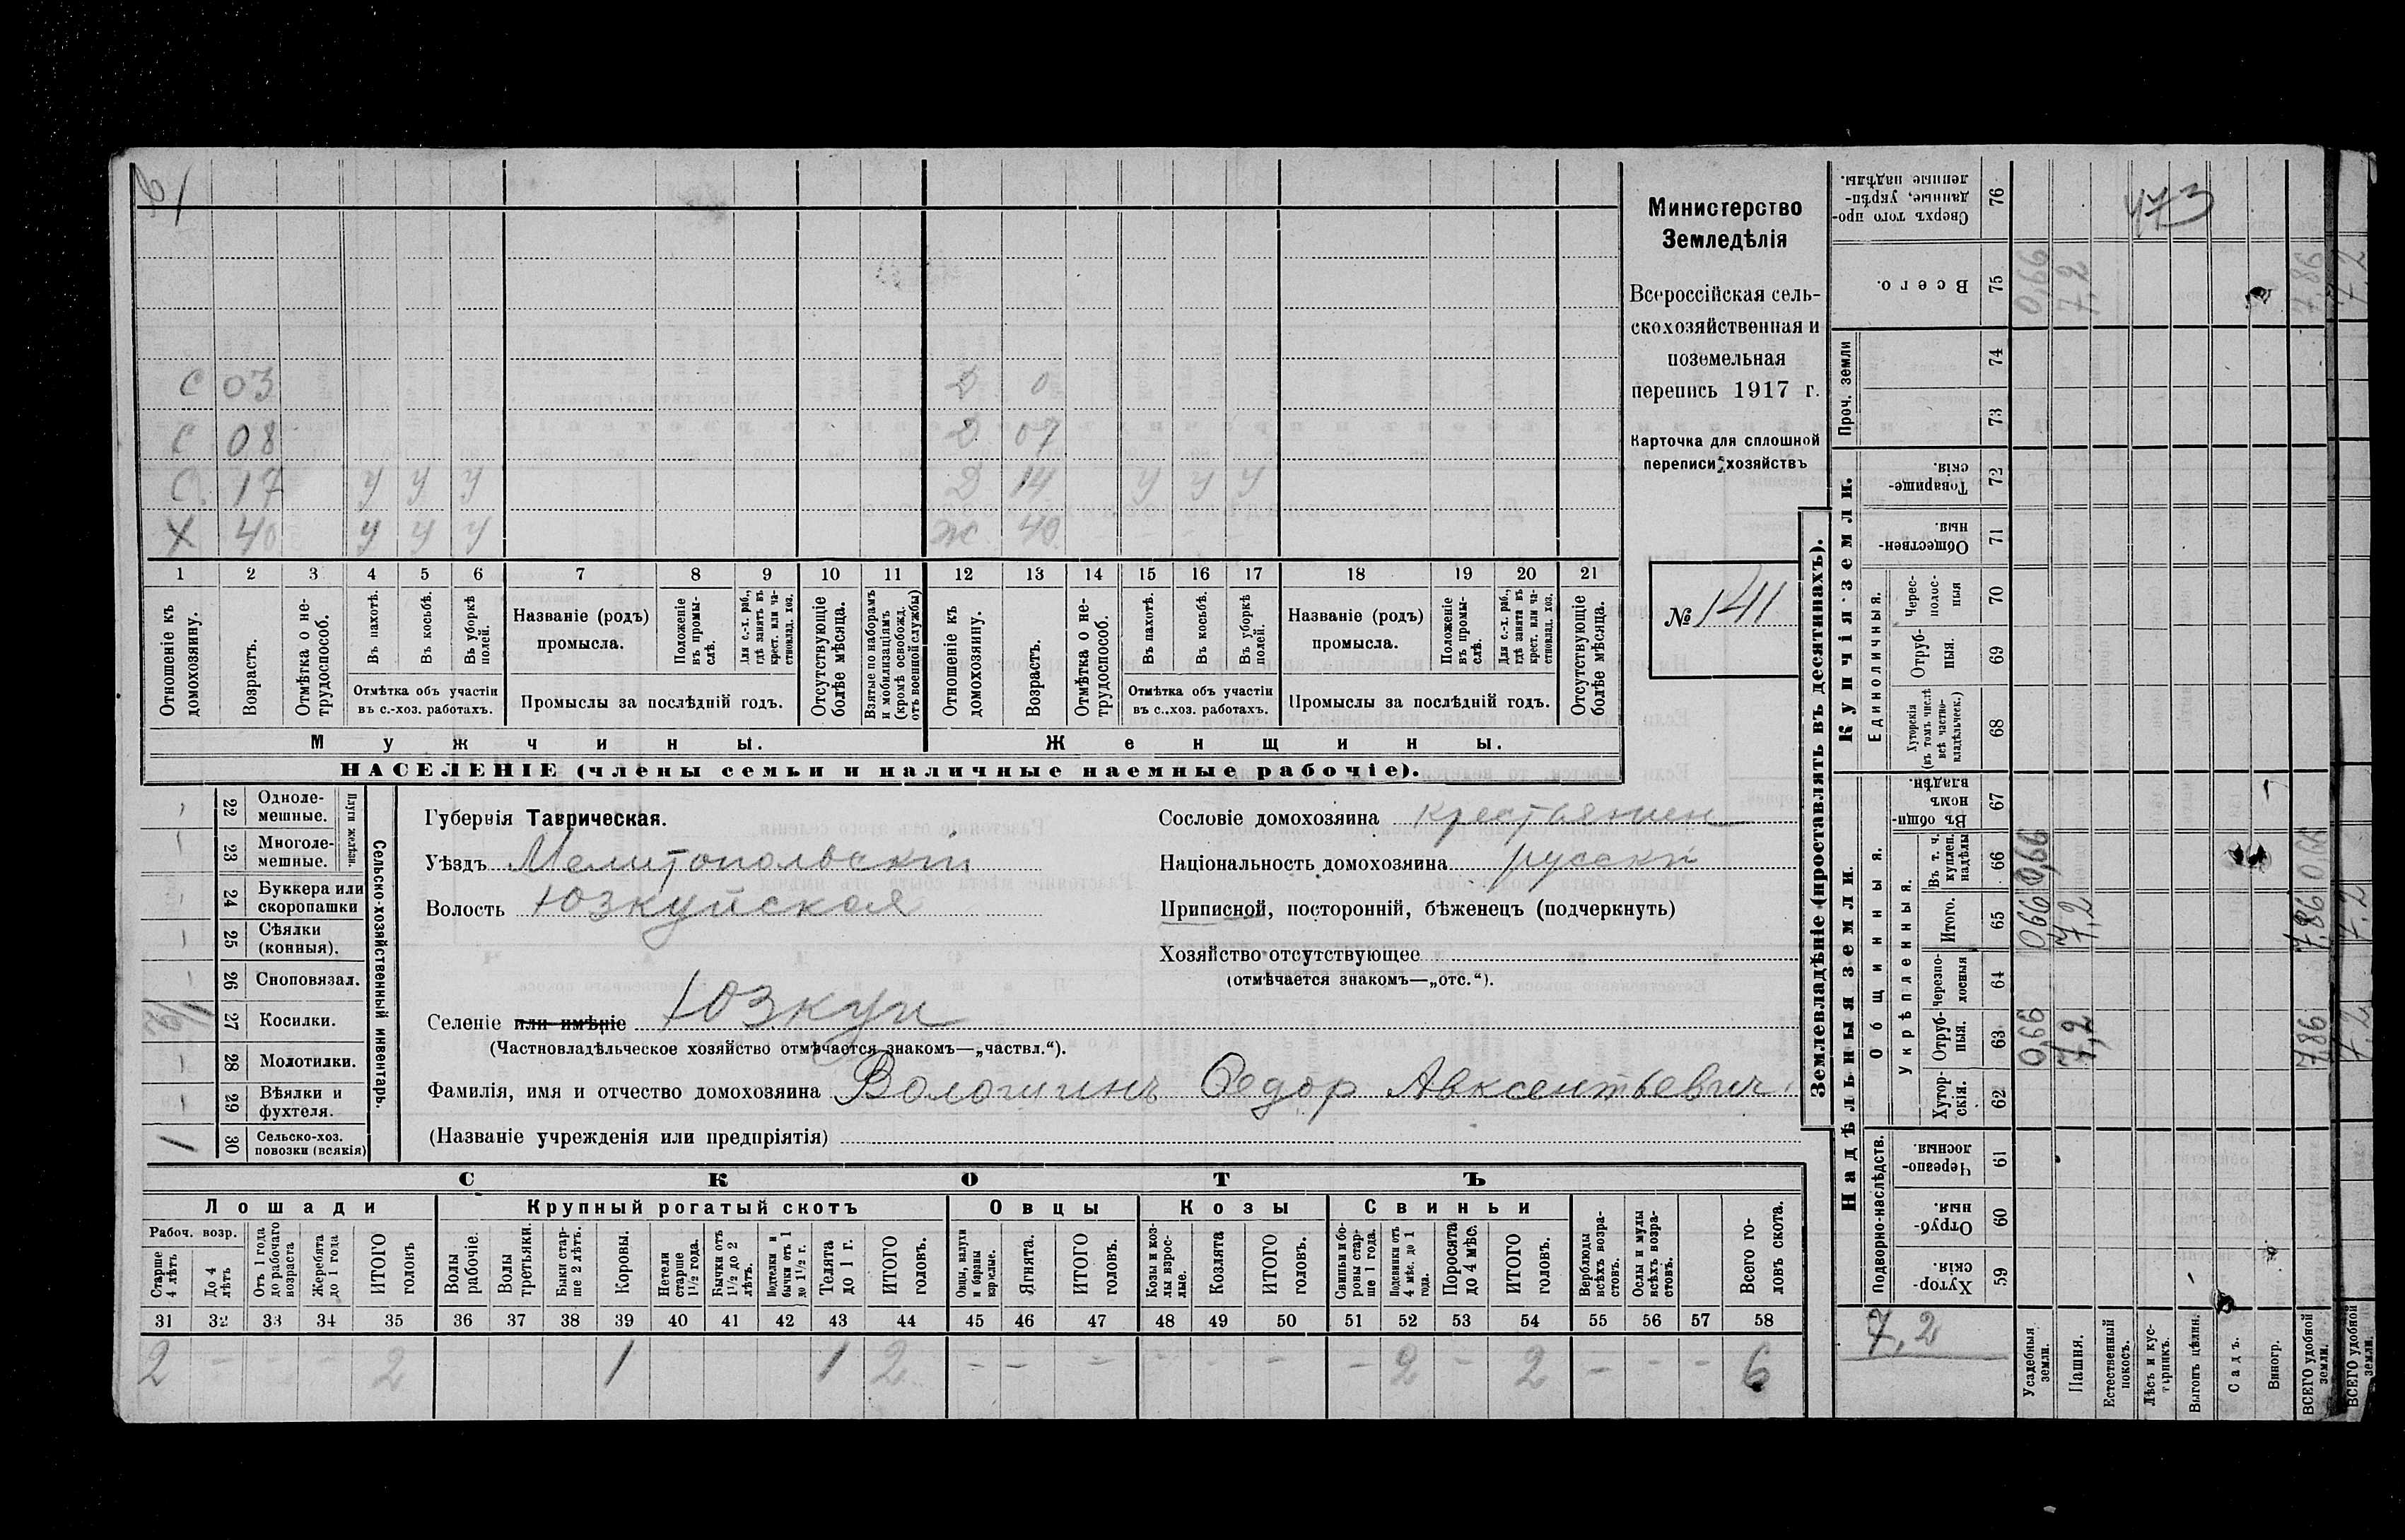 21
С 03 Д 0
С 08 Д 07
С. 17 у у у Д 14 у у у
Х 40 у у у Ж. 40
1 2 3 4 5 6 7 8 9 10 11 12 13 14 15 16 17 18 19 20 21
Отношеніе къ домохозяину.
Возрастъ.
Отмѣтка о не-трудоспособ.
Въ пахотѣ.
Въ косьбѣ.
Въ уборкѣ полей.
Отмѣтка объ участіи
въ с.-хоз. работахъ.
Названіе (родъ)
промысла.
Положеніе въ промы-слѣ.
Для с.-х. раб., гдѣ занятъ въ крест. или ча-стновлад. хоз.
Промыслы за послѣдній годъ.
Отсутствующіе болѣе мѣсяца.
Взятые по наборамъ и мобилизаціямъ (кромѣ освобожд. отъ военной службы)
Отношеніе къ домохозяину.
Возрастъ.
Отмѣтка о не-трудоспособ.
Въ пахотѣ.
Въ косьбѣ.
Въ уборкѣ полей.
Отмѣтка объ участіи
въ с.-хоз. работахъ.
Названіе (родъ)
промысла.
Положеніе въ промы-слѣ.
Для с.-х. раб., гдѣ занята въ крест. или ча-стновлад. хоз.
Промыслы за послѣдній годъ.
Отсутствующіе болѣе мѣсяца.
Мужчины. Женщины.
НАСЕЛЕНІЕ (члены семьи и наличные наемные рабочіе).
Министерство
Земледѣлія
Всероссійская сель-
скохозяйственная и
поземельная
перепись 1917 г.
Карточка для сплошной
переписи хозяйствъ
№ 141
Сельско-хозяйственный инвентарь.
Плуги желѣзн.
22 Одноле-мешные.
23 Многоле-мешные.
24 Буккера или скоропашки
25 Сѣялки (конныя).
26 Сноповязал.
27 Косилки.
28 Молотилки.
29 Вѣялки и фухтеля.
1 30 Сельско-хоз. повозки (всякія)
Губернія Таврическая.
Уѣздъ Мелитопольскій
Волость Юзкуйская
Селеніе или имѣніе Юзкуи
(Частновладѣльческое хозяйство отмѣчается знакомъ—„частвл.“).
Фамилія, имя и отчество домохозяина Вологшинъ Федор Авксентьевич
(Названіе учрежденія или предпріятія)
Сословіе домохозяина крестьянин
Національность домохозяина русскій
Приписной, посторонній, бѣженецъ (подчеркнуть)
Хозяйство отсутствующее
(отмѣчается знакомъ—„отс.“).
СКОТЪ
Лошади Крупный рогатый скотъ Овцы Козы Свиньи
Рабоч. возр.
Старше 4 лѣтъ
До 4 лѣтъ
Отъ 1 года до рабочаго возраста
Жеребята до 1 года
ИТОГО головъ
Волы рабочіе.
Волы третьяки.
Быки стар-ше 2 лѣтъ.
Коровы.
Нетели старше 1 1/2 года.
Бычки отъ 1 1/2 до 2 лѣтъ.
Подтелки и бычки отъ 1 до 1 1/2 г.
Телята до 1 г.
ИТОГО головъ.
Овцы, валухи и бараны взрослые.
Ягнята.
ИТОГО головъ.
Козы и коз-лы взрос-лые.
Козлята
ИТОГО головъ.
Свиньи и бо-ровы стар-ше 1 года.
Подсвинки отъ 4 мѣс. до 1 года.
Поросята до 4 мѣс.
ИТОГО головъ.
Верблюды всѣхъ возра-стовъ.
Ослы и мулы всѣхъ возра-стовъ.
Всего го-ловъ скота.
31 32 33 34 35 36 37 38 39 40 41 42 43 44 45 46 47 48 49 50 51 52 53 54 55 56 57 58
2 - - - 2 1 1 2 - - - - - - - 2 - 2 - - - 6
Землевладѣніе (проставлять въ десятинахъ).
Купчія земли.
Надѣльныя земли.
Сверхъ того про-данные, укрѣп-ленные надѣлы. 76
473
Всего. 75 0,66 7,2 7,86 7,2
Проч. земли 74
73
Товарище-скія. 72
Обществен-ныя. 71
Единоличныя.
Черес-полос-ныя 70
Отруб-ныя. 69
Хуторскія (въ томъ числѣ всѣ частно-владѣльческ.) 68
Общинныя.
Въ общин-номъ владѣн. 67
Укрѣпленныя.
Въ т. ч. куплен. надѣлы 66 0,66 0,66
Итого. 65 0,66 7,2 7,86 7,2
Черезпо-лосныя 64
Отруб-ныя. 63 0,66 7,2 7,86 7,2
Хутор-скія. 62
Подворно-наслѣдств.
Черезпо-лосныя. 61
Отруб-ныя. 60
Хутор-скія. 59
7,2
Усадебныя земли.
Пашня.
Естественный покосъ.
Лѣсъ и кус-тарникъ.
Выгонъ цѣлин.
Садъ.
Виногр.
ВСЕГО удобной земли.
ВСЕГО удобной земли.